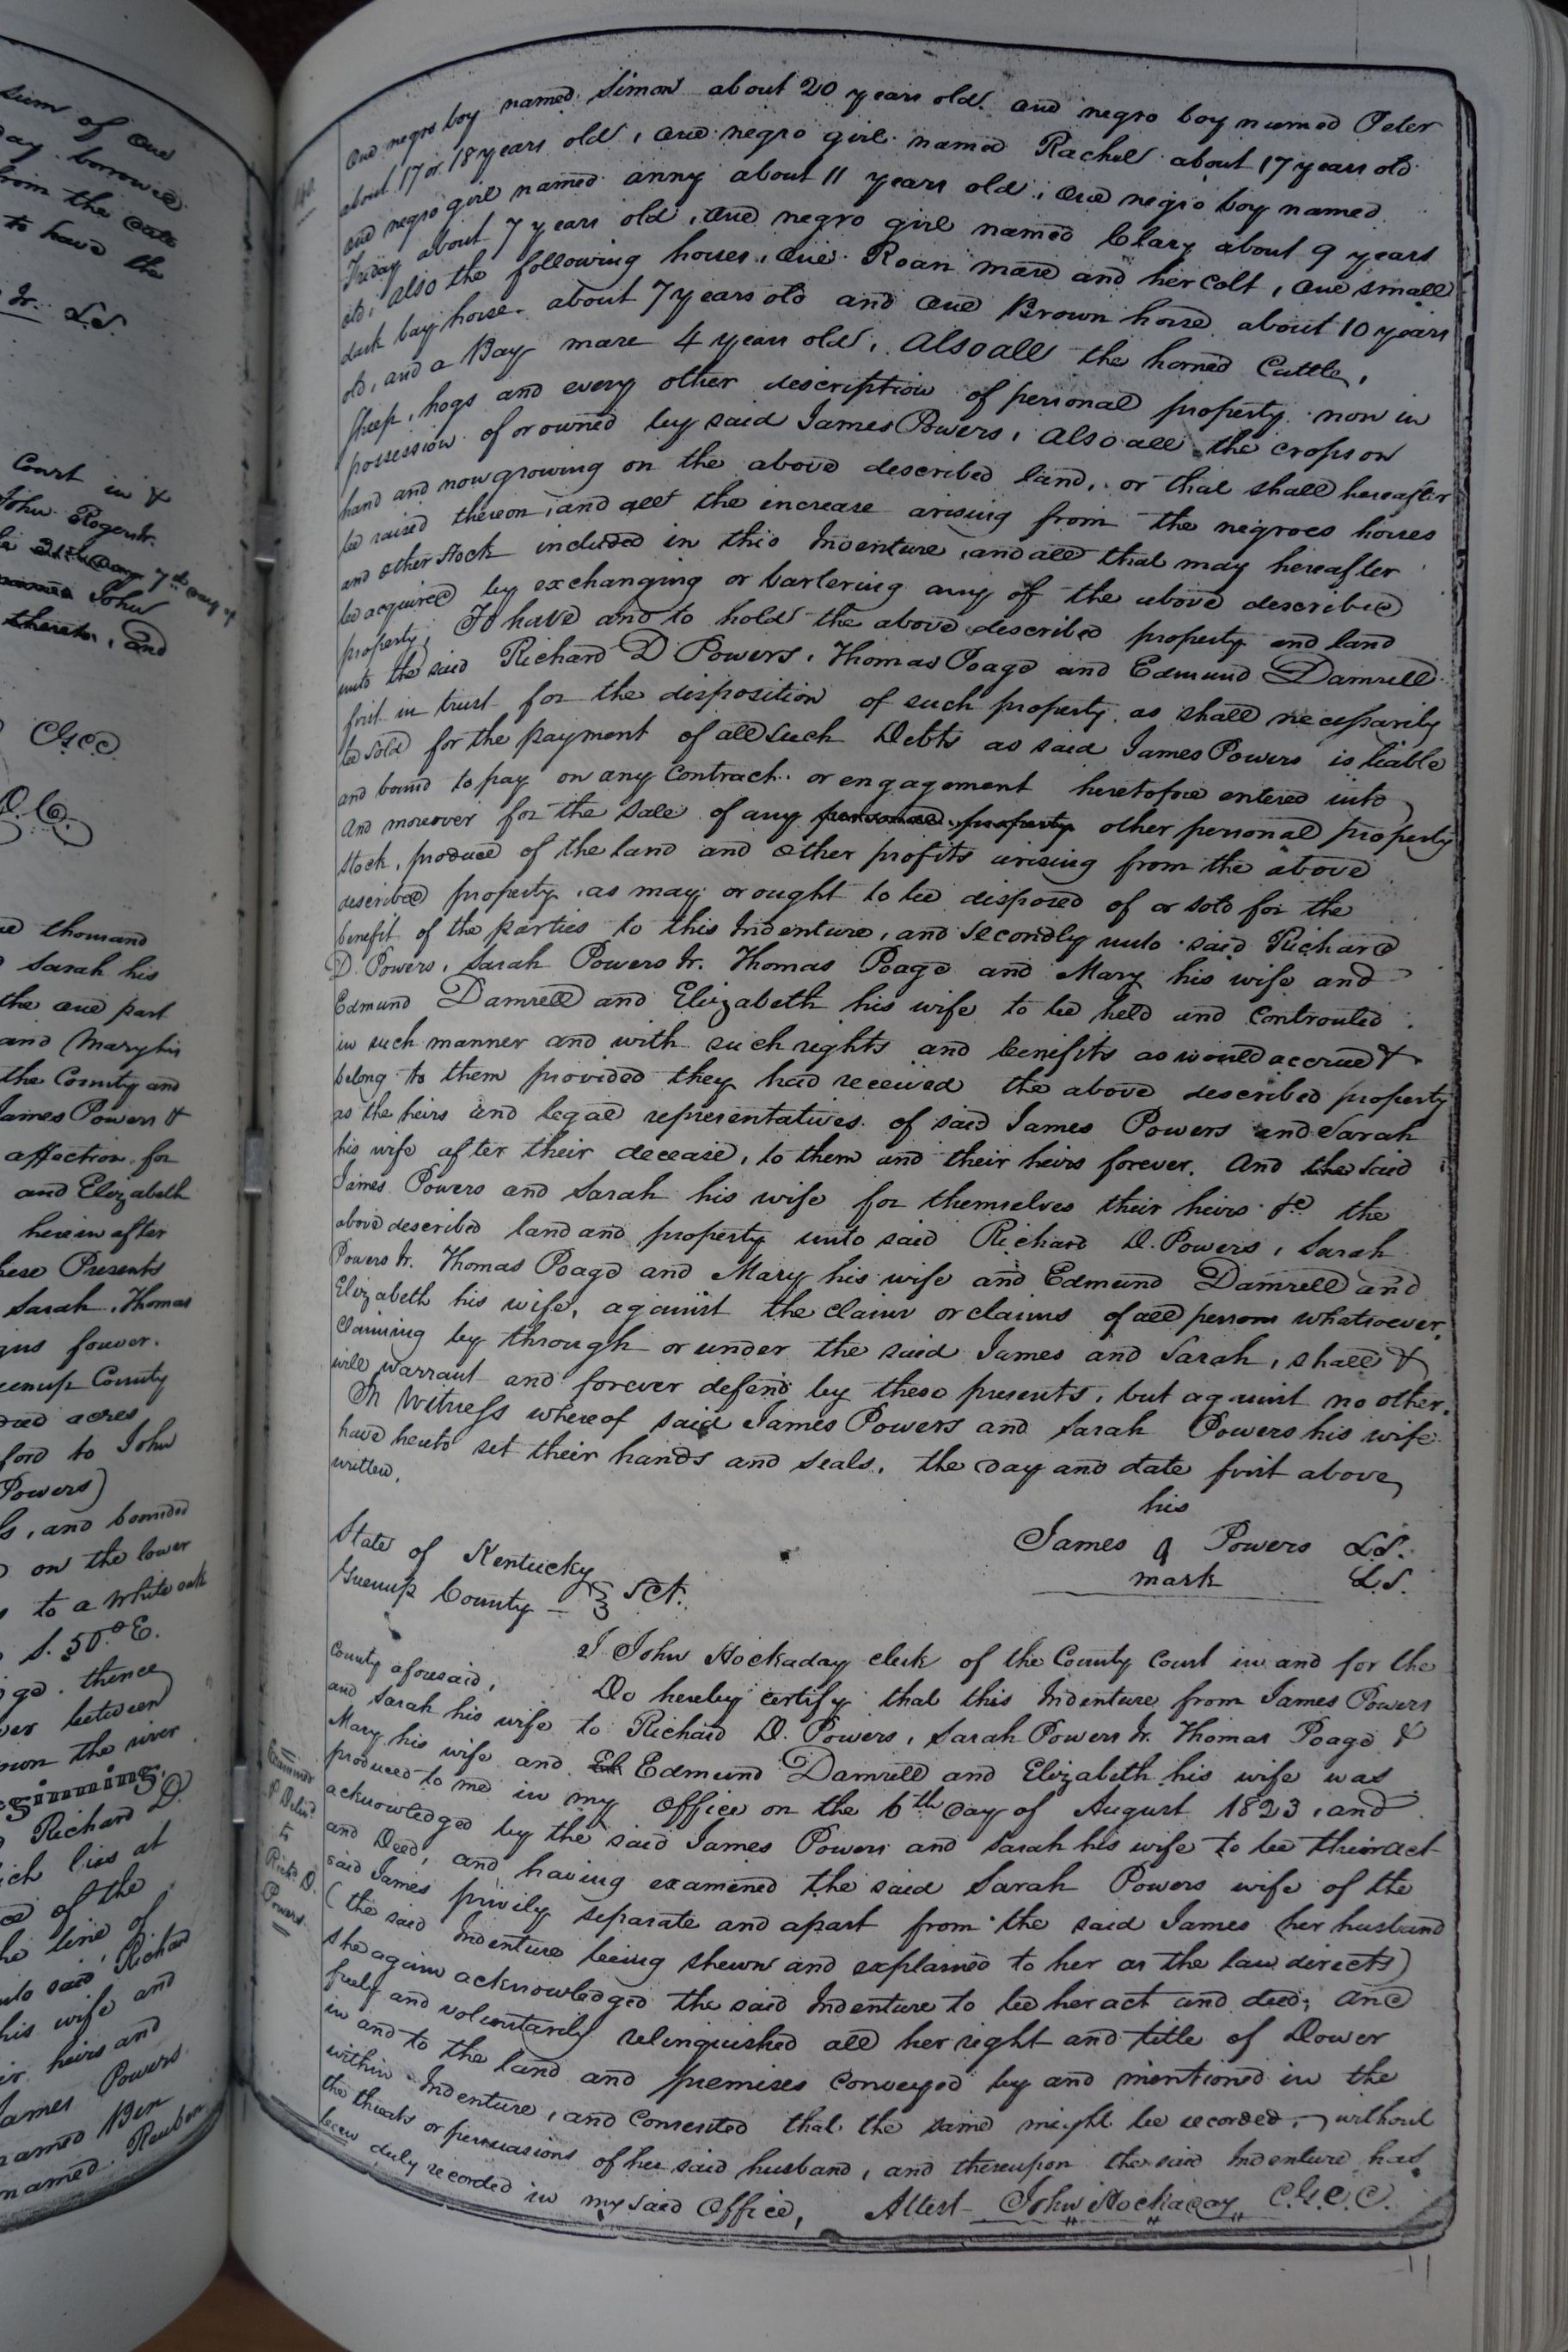 sum of one
day borrowed
from the
to have the
Jr. L.S.
Court in &
John
7th day of
John
thereto, and
C.G.C.C.
D.C.
thousand
Sarah his
the one part
and Mary his
the County and
James Powers &
affection for
and Elizabeth
herein after
these Presents
Sarah, Thomas
forever.
County
acres
ford to John
Powers)
and bounded
on the lower
to a White oak
S. 50° E.
thence
between
the river
Richard D.
lies at
of the
line of
said, Richard
his wife and
heirs and
James Powers
named Ben
named Reuben
140
One negro boy named Simon about 20 years old. one negro boy named Peter
about 17 or 18 years old, one negro girl named Rachel about 17 years old
one negro girl named anny about 11 years old, one negro boy named
Friday about 7 years old, one negro girl named Clary about 9 years
old, also the following horses, one Roan mare and her colt, one small
dark bay horse about 7 years old and one Brown horse about 10 years
old, and a Bay mare 4 years old, Also all the horned Cattle,
Sheep, hogs and every other description of personal property now in
possession of or owned by said James Powers, Also all the crops on
hand and now growing on the above described land, or that shall hereafter
be raised thereon, and all the increase arising from the negroes horses
and other stock included in this Indenture, and all that may hereafter
be acquired by exchanging or bartering any of the above described
property, To have and to hold the above described property and land
unto the said Richard D Powers, Thomas Poage and Edmund Damrell
first in trust for the disposition of such property as shall necessarily
be sold for the payment of all such Debts as said James Powers is liable
and bound to pay on any Contract or engagement heretofore entered into
And moreover for the sale of any personal property other personal property
stock, produce of the land and other profits arising from the above
described property, as may or ought to be disposed of or sold for the
benefit of the parties to this Indenture, and Secondly unto said Richard
D. Powers, Sarah Powers Jr. Thomas Poage and Mary his wife and
Edmund Damrell and Elizabeth his wife to be held and controuled
in such manner and with such rights and benifits as would accrue &
belong to them provided they had received the above described property
as the heirs and legal representatives of said James Powers and Sarah
his wife after their decease, to them and their heirs forever. And the said
James Powers and Sarah his wife for themselves their heirs &c the
above described land and property unto said Richard D. Powers, Sarah
Powers Jr. Thomas Poage and Mary his wife and Edmund Damrell and
Elizabeth his wife, against the claim or claims of all persons whatsoever,
Claiming by through or under the said James and Sarah, shall &
will warrant and forever defend by these presents, but against no other.
In Witness whereof said James Powers and Sarah Powers his wife
have hereto set their hands and seals, the day and date first above
written,
his
James Powers L.S.
mark L.S.
State of Kentucky
Greenup County Sct.
I John Hockaday clerk of the County Court in and for the
County aforesaid, Do hereby certify that this Indenture from James Powers
and Sarah his wife to Richard D. Powers, Sarah Powers Jr. Thomas Poage &
Mary his wife and Edmund Damrell and Elizabeth his wife was
produced to me in my office on the 6th day of August 1823, and
acknowledged by the said James Powers and Sarah his wife to be their act
and Deed, and having examined the said Sarah Powers wife of the
said James privily separate and apart from the said James her husband
(the said Indenture being shewn and explained to her as the law directs)
she again acknowledged the said Indenture to be her act and deed, and
freely and voluntarily relinquished all her right and title of Dower
in and to the land and premises conveyed by and mentioned in the
within Indenture, and Consented that the same might be recorded, without
the threats or persuasions of her said husband, and thereupon the said Indenture has
been duly recorded in my said Office, Attest John Hockaday C.G.C.C.
Examined
& Deliv'd
to
Rich. D.
Powers